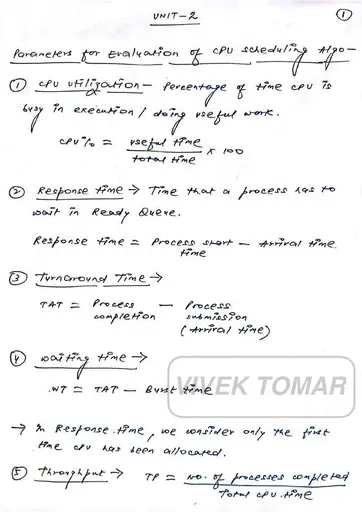 UNIT-2
1
Parameters for Evaluation of CPU scheduling Algo-
① CPU utilization - Percentage of time CPU is
busy in execution / doing useful work.
CPU% = useful time / total time × 100
② Response time → Time that a process has to
wait in Ready Queue.
Response time = Process start time - Arrival time
③ Turnaround Time →
TAT = Process completion - Process submission (Arrival time)
④ waiting time →
WT = TAT - Burst time
VIVEK TOMAR
→ In Response time, we consider only the first
time CPU has been allocated.
⑤ Throughput → TP = no. of processes completed / Total CPU time